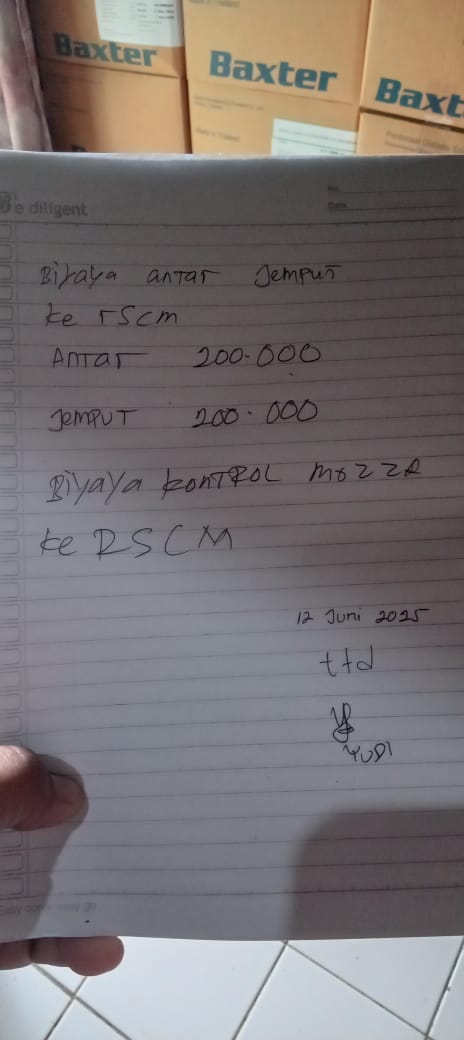 Baxter
Baxter
Baxt
Be diligent
No
Date
Biyaya antar Jemput
ke rscm
Antar 200.000
Jemput 200.000
Biyaya kontrol mozza
ke RSCM
12 Juni 2025
ttd
YUDI